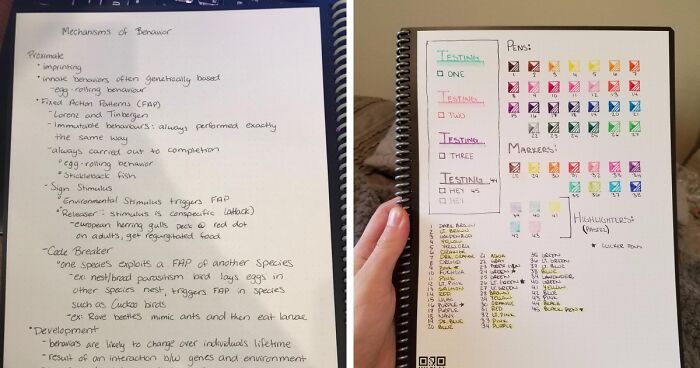 Mechanisms of Behavior
Proximate
• Imprinting
• innate behaviors often genetically based
- egg-rolling behaviour
• Fixed Action Patterns (FAP)
- Lorenz and Tinbergen
- Immutable behaviours: always performed exactly
the same way
- always carried out to completion
° egg-rolling behavior
° Stickleback fish
- Sign Stimulus
° Environmental Stimulus triggers FAP
° Releaser: stimulus is conspecific (attack)
- european herring gulls peck @ red dot
on adults, get regurgitated food
- Code Breaker
° one species exploits a FAP of another species
- ex: nest/brood parasitism bird lays eggs in
other species nest, triggers FAP in species
such as Cuckoo birds
- ex: Rove beetles mimic ants and then eat larvae
• Development
- behaviors are likely to change over individuals lifetime
- result of an interaction b/w genes and environment
TESTING
ONE
TESTING
TWO
TESTING
THREE
TESTING 44
HEY 45
HEY
PENS:
1 2 3 4 5 6 7
8 9 10 11 12 13 14
15 16 17 18 19 20 21
22 23 24 25 26 27
MARKERS:
28 29 30 31 32 33 34
35 36 37 38
HIGHLIGHTERS:
(PASTEL)
39 40 41
42 43
1 DARK BROWN
2 LT. BROWN
4 YELLOW
6 ORANGE
7 DRK. ORANGE
8 ORCHID
9 PINK *
10 FUCHSIA
11 PINK
12 LT. PINK
13 SALMON
14 RED
15 LILAC
16 PURPLE *
17 PURPLE
18 NAVY
19 DK. BLUE
20 BLUE
21 AQUA
22 GRAY
24 GREEN *
25 GREEN
26 LT. GREEN *
27 LT. GREEN
28 BROWN
29 YELLOW
30 ORANGE
31 RED
32 LT. PINK
33 PINK
34 PURPLE
35 GREEN
36 LT. GREEN
37 LT. BLUE
38 BLUE
39 LAVENDER
40 GREEN
41 YELLOW
42 BLUE
43 PINK
44 BLACK
45 BLACK PEN *